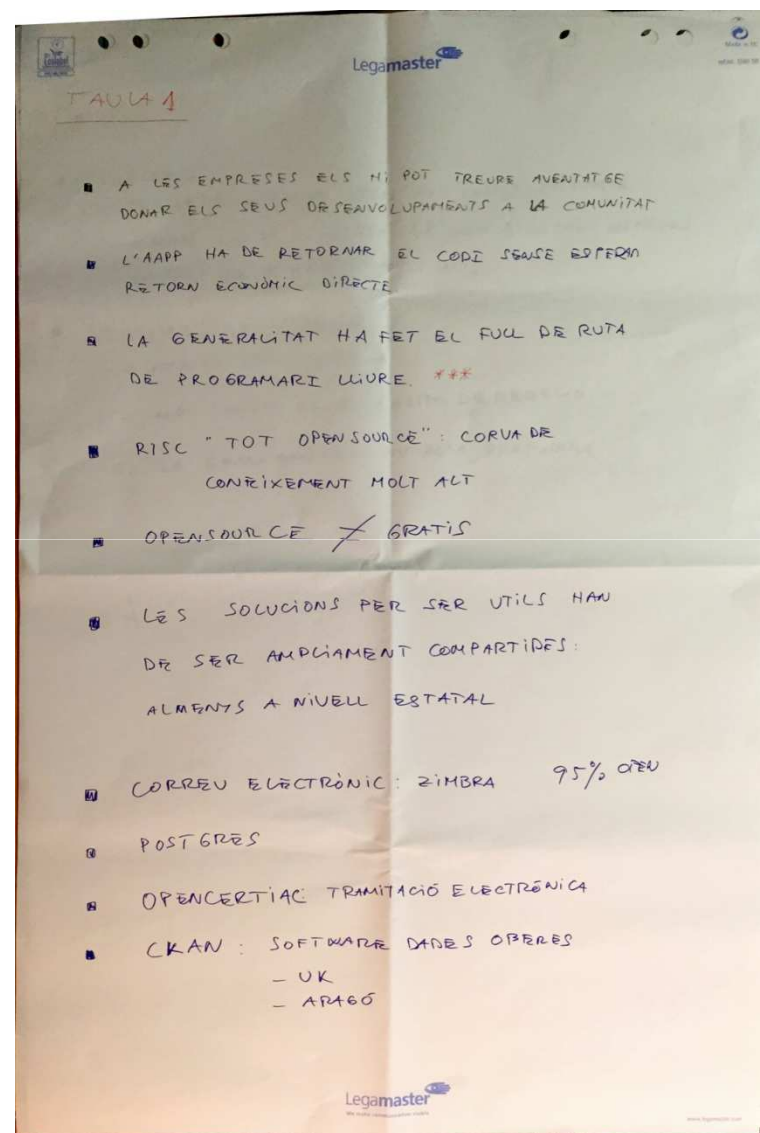 Legamaster
TAULA 1
A LES EMPRESES ELS HI POT TREURE AVENTATGE
DONAR ELS SEUS DESENVOLUPAMENTS A LA COMUNITAT
L'AAPP HA DE RETORNAR EL CODI SENSE ESPERAR
RETORN ECONÒMIC DIRECTE
LA GENERALITAT HA FET EL FULL DE RUTA
DE PROGRAMARI LLIURE. ***
RISC "TOT OPENSOURCE": CORVA DE
CONEIXEMENT MOLT ALT
OPENSOURCE ≠ GRATIS
LES SOLUCIONS PER SER UTILS HAN
DE SER AMPLIAMENT COMPARTIDES:
ALMENYS A NIVELL ESTATAL
CORREU ELECTRÒNIC: ZIMBRA 95% OPEN
POSTGRES
OPENCERTIAC: TRAMITACIÓ ELECTRÓNICA
CKAN: SOFTWARE DADES OBERES
- UK
- ARAGÓ
Legamaster